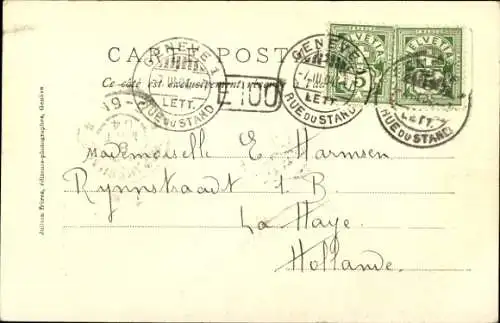 CARTE POSTALE
Ce côté est exclusivement réservé
GENÈVE 1
LETT.
RUE DU STAND
E 100
GENÈVE 1
LETT.
RUE DU STAND
HELVETIA
5
HELVETIA
LETT.
RUE DU STAND
Mademoiselle E. Harmsen
Rynnstraadt 1. B.
La Haye
Hollande.
Jullien Frères, éditeurs-photographes, Genève